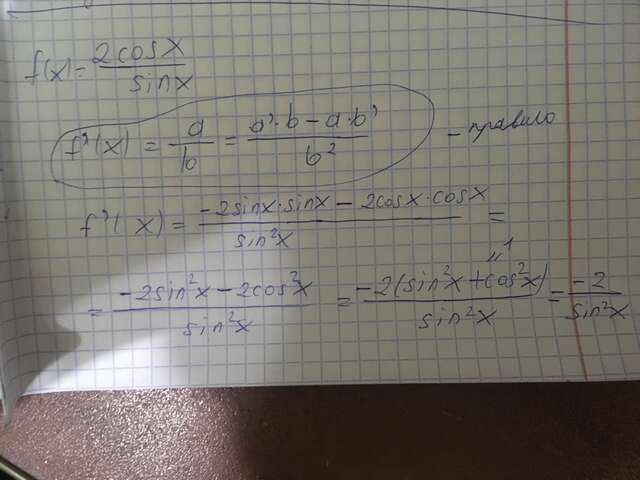 f(x) = 2cosx / sinx
f'(x) = a/b = a'·b - a·b' / b² - правило
f'(x) = -2sinx·sinx - 2cosx·cosx / sin²x =
= -2sin²x - 2cos²x / sin²x = -2(sin²x + cos²x) / sin²x = -2 / sin²x
"1